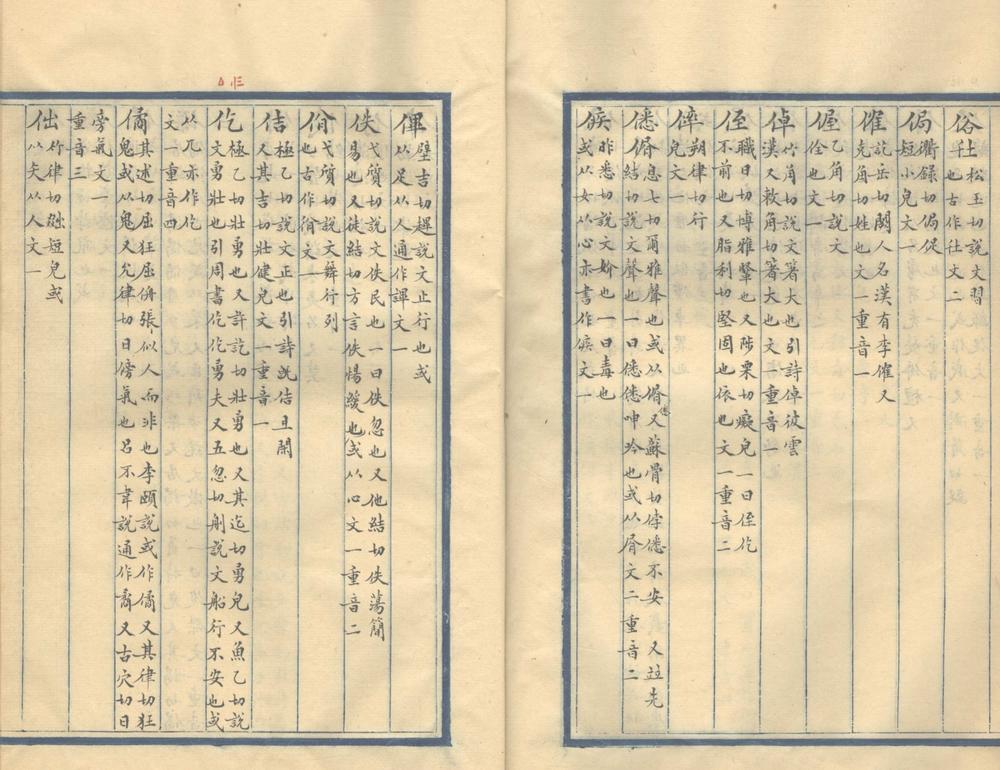 俗仕 松玉切說文習
也古作仕文二
侷衢録切侷促
短小皃文一
傕訖岳切闕人名漢有李傕又
克角切姓也文一重音一
偓乙角切說文
佺也文一
倬竹角切說文著大也引詩倬彼雲
漢又敕角切著大也文一重音一
侄職日切博雅堅也又陟栗切癡皃一曰侄仡
不前也又脂利切堅固也依也文一重音二
㑮朔律切行
皃文一
僁㑛息七切爾雅聲也或从㑛又蘇骨切㑛僁不安又竝先
結切說文聲也一曰僁僁呻吟也或从屑文二重音二
㑵昨悉切說文妎也一曰毒也
或从女从心亦書作㑵文一
㑻壁吉切趩說文止行也或
从足从人通作譂文一
佚弋質切說文佚民也一曰佚忽也又他結切佚蕩簡
易也又徒結切方言佚惕緩也或从心文一重音二
佾弋質切說文舞行列
也古作㑜文一
佶極乙切說文正也引詩旣佶且閑
又其吉切壯健皃文一重音一
仡極乙切壯勇也又許訖切壯勇也又其迄切勇皃又魚乙切說
文勇壯也引周書仡仡勇夫又五忽切刖說文船行不安也或
从兀亦作仡
文一重音四
僪其述切屈狂屈侜張似人而非也李頤說或作僪又其律切狂
鬼或从鬼又允律切日傍氣也呂不韋說通作矞又古穴切日
旁氣文一
重音三
㑁竹律切㑁短皃或
从矢从人文一